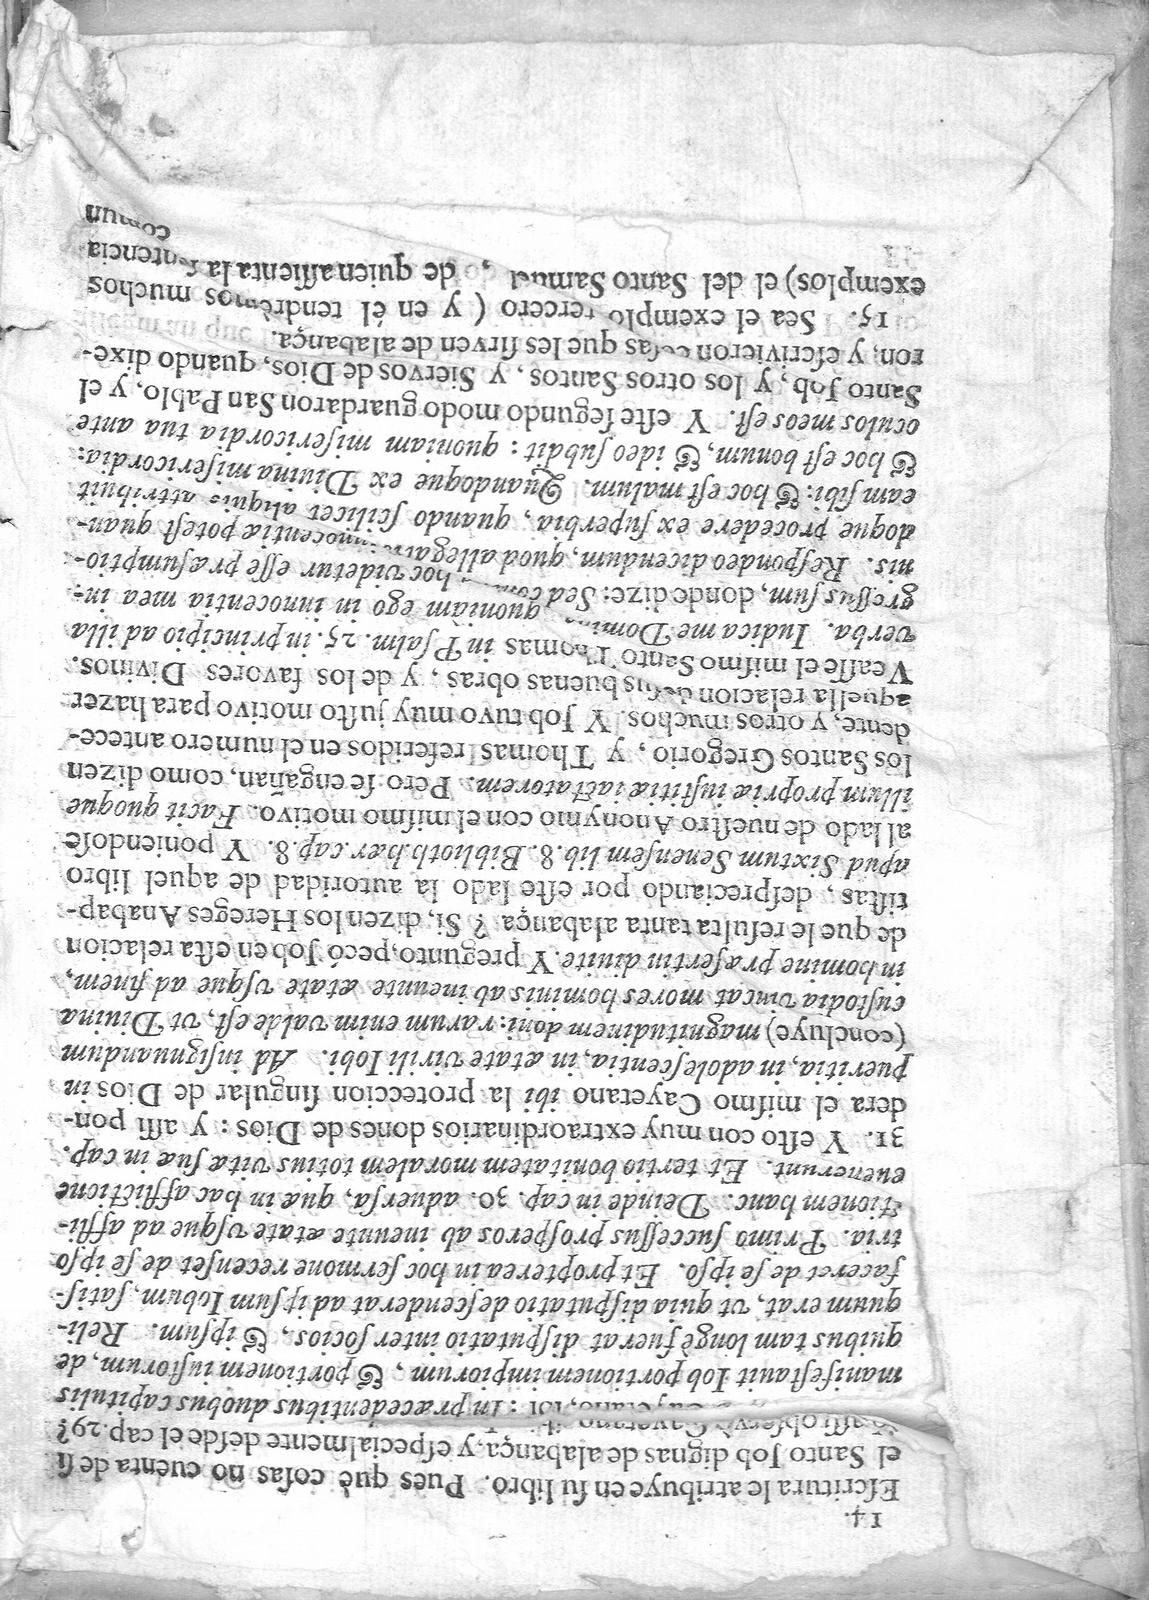 14.
Eſcritura le atribuye en ſu libro. Pues què coſas no cuenta de ſi
el Santo Job dignas de alabança, y eſpecialmente deſde el cap. 29?
aſſi obſervò Cayetano
Cayetano, ibi: In præcedentibus duobus capitulis
manifeſtauit Iob portionem impiorum, & portionem iuſtorum, de
quibus tam longè fuerat diſputatio inter ſocios, & ipſum. Reli-
quum erat, vt quia diſputatio deſcenderat ad ipſum Iobum, ſatiſ-
faceret de ſe ipſo. Et propterea in hoc ſermone recenſet de ſe ipſo
tria. Primo ſucceſſus proſperos ab ineunte ætate vſque ad affli-
ctionem hanc. Deinde in cap. 30. aduerſa, quæ in hac afflictione
euenerunt. Et tertio bonitatem moralem totius vitæ ſuæ in cap.
31. Y eſto con muy extraordinarios dones de Dios: y aſſi pon-
dera el miſmo Cayetano ibi la proteccion ſingular de Dios in
pueritia, in adoleſcentia, in ætate virili Iobi. Ad inſignuandum
(concluye) magnitudinem doni: rarum enim valde eſt, vt Diuina
cuſtodia vincat mores hominis ab ineunte ætate vſque ad finem,
in homine præſertim diuite. Y pregunto, pecó Job en eſta relacion
de que le reſulta tanta alabança? Si, dizen los Hereges Anabap-
tiſtas, deſpreciando por eſte lado la autoridad de aquel libro
apud Sixtum Senenſem lib. 8. Biblioth. hær. cap. 8. Y poniendoſe
al lado de nueſtro Anonymo con el miſmo motivo. Facit quoque
illum propriæ iuſtitiæ iactatorem. Pero ſe engañan, como dizen
los Santos Gregorio, y Thomas referidos en el numero antece-
dente, y otros muchos. Y Job tuvo muy juſto motivo para hazer
aquella relacion de ſus buenas obras, y de los favores Divinos.
Veaſſe el miſmo Santo Thomas in Pſalm. 25. in principio ad illa
verba. Iudica me Domine quoniam ego in innocentia mea in-
greſſus ſum, donde dize: Sed hoc videtur eſſe præſumptio-
nis. Reſpondeo dicendum, quod allegatio innocentiæ poteſt quan-
doque procedere ex ſuperbia, quando ſcilicet aliquis attribuit
eam ſibi: & hoc eſt malum. Quandoque ex Diuina miſericordia:
& hoc eſt bonum, & ideo ſubdit: quoniam miſericordia tua ante
oculos meos eſt. Y eſte ſegundo modo guardaron San Pablo, y el
Santo Job, y los otros Santos, y Siervos de Dios, quando dixe-
ron, y eſcrivieron coſas que les ſirven de alabança.
15. Sea el exemplo tercero ( y en él tendrèmos muchos
exemplos) el del Santo Samuel, de quien aſſienta la ſentencia
comun